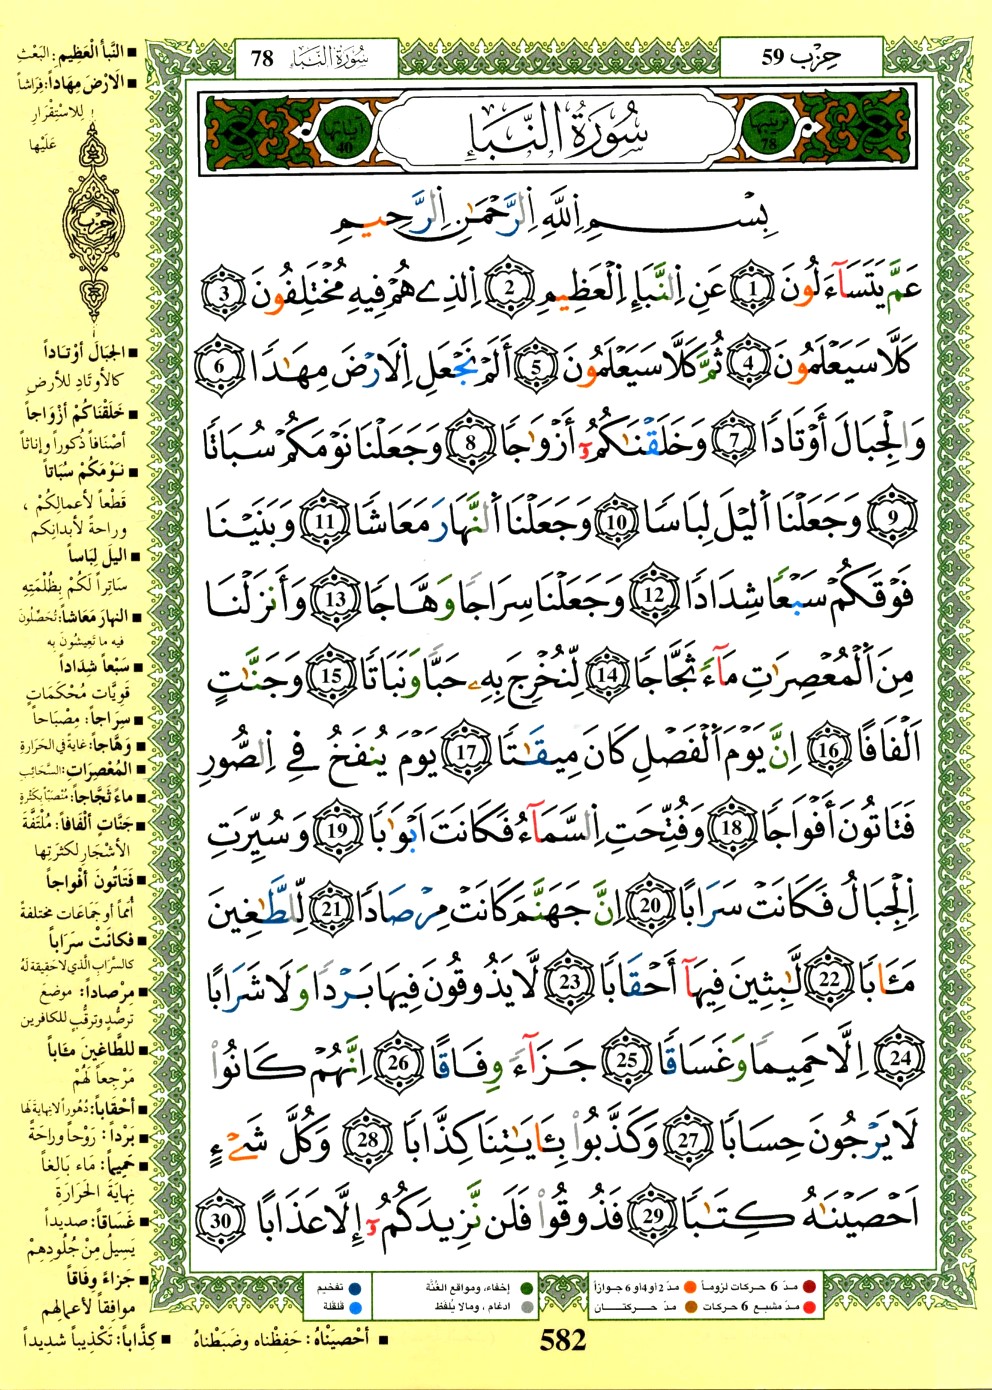 حِزْب 59
سُورَةُ النَّبَإِ 78
ترتيبها 78
سُورَةُ النَّبَإِ
آياتها 40
بِسْمِ اِللَّهِ اِلرَّحْمَٰنِ اِلرَّحِيمِ
عَمَّ يَتَسَآءَلُونَ 1 عَنِ اِلنَّبَإِ اِلْعَظِيمِ 2 اِلذِے هُمْ فِيهِ مُخْتَلِفُونَ 3
كَلَّا سَيَعْلَمُونَ 4 ثُمَّ كَلَّا سَيَعْلَمُونَ 5 أَلَمْ نَجْعَلِ اِلَارْضَ مِهَٰدًا 6
وَالْجِبَالَ أَوْتَادًا 7 وَخَلَقْنَٰكُمُۥٓ أَزْوَٰجًا 8 وَجَعَلْنَا نَوْمَكُمْ سُبَاتًا
9 وَجَعَلْنَا اَليْلَ لِبَاسًا 10 وَجَعَلْنَا اَلنَّهَارَ مَعَاشًا 11 وَبَنَيْنَا
فَوْقَكُمْ سَبْعًا شِدَادًا 12 وَجَعَلْنَا سِرَاجًا وَهَّاجًا 13 وَأَنزَلْنَا
مِنَ اَلْمُعْصِرَٰتِ مَآءً ثَجَّاجًا 14 لِّنُخْرِجَ بِهِۦ حَبًّا وَنَبَاتًا 15 وَجَنَّٰتٍ
اَلْفَافًا 16 اِنَّ يَوْمَ اَلْفَصْلِ كَانَ مِيقَٰتًا 17 يَوْمَ يُنفَخُ فِے اِلصُّورِ
فَتَاتُونَ أَفْوَاجًا 18 وَفُتِّحَتِ اِلسَّمَآءُ فَكَانَتَ اَبْوَٰبًا 19 وَسُيِّرَتِ
اِلْجِبَالُ فَكَانَتْ سَرَابًا 20 اِنَّ جَهَنَّمَ كَانَتْ مِرْصَادًا 21 لِّلطَّٰغِينَ
مَـَٔابًا 22 لَّٰبِثِينَ فِيهَآ أَحْقَابًا 23 لَّا يَذُوقُونَ فِيهَا بَرْدًا وَلَا شَرَابًا
24 اِلَّا حَمِيمًا وَغَسَاقًا 25 جَزَآءً وِفَاقًا 26 اِنَّهُمْ كَانُواْ
لَا يَرْجُونَ حِسَابًا 27 وَكَذَّبُواْ بِـَٔايَٰتِنَا كِذَّابًا 28 وَكُلَّ شَےْءٍ
اَحْصَيْنَٰهُ كِتَٰبًا 29 فَذُوقُواْ فَلَن نَّزِيدَكُمُۥٓ إِلَّا عَذَابًا 30
■ النَّبَأ الْعَظِيم: البَعْث
■ الَارْضَ مِهَاداً: فِرَاشاً
لِلاسْتِقْرَارِ
عَلَيْها
حِزْب
■ الجَبَالَ أوْتَاداً
كالأوتَادِ للأرضِ
■ خَلَقْنَاكُمُ أزْوَاجاً
أصْنَافاً ذُكوراً وإناثاً
■ نَوْمَكُمْ سُبَاتاً
قَطْعاً لأعمالِكُمْ،
وراحةً لأبدانِكم
■ اليلَ لِبَاساً
سَاتِراً لَكُمْ بِظُلْمَتِهِ
■ النهارَ مَعَاشاً: تُحَصِّلونَ
فيه ما تَعِيشُونَ به
■ سَبْعاً شِدَاداً
قَوِيَّاتٍ مُحْكَمَاتٍ
■ سِرَاجاً: مِصْبَاحاً
■ وَهَّاجاً: غاية في الحَرَارةِ
■ المُعْصِرَاتِ: السَّحَائِبِ
■ ماءً ثَجَّاجاً: مُنْصَبّاً بِكَثْرةٍ
■ جَنَّاتٍ ألْفَافاً: مُلْتَفَّةَ
الأشْجارِ لكثرَتِها
■ فَتَاتُونَ أفْوَاجاً
أُمماً أو جَمَاعَات مختلفةً
■ فكانَتْ سَرَاباً
كالسَّرَابِ الَّذي لا حَقِيقةَ لهُ
■ مِرْصاداً: موضعَ
تَرَصُّدٍ وترقُّبٍ للكافرين
■ للطَّاغينَ مئاباً
مَرْجِعاً لَهُمْ
■ أحْقَاباً: دُهُوراً لا نِهايةَ لَها
■ بَرْداً: رَوْحاً وراحَةً
■ حَمِيماً: مَاء بَالِغاً
نِهايَةَ الحَرَارَةِ
■ غَسَاقاً: صديداً
يَسِيلُ مِنْ جُلُودِهِمْ
■ جَزاءً وِفَاقاً
موافِقاً لأعمالِهم
■ كِذَّاباً: تَكْذِيباً شَدِيداً
■ أحْصيْنَاهُ: حَفِظْناه وضَبَطْناهُ
مدّ 6 حركات لزوماً
مدّ 2 أو 4 أو 6 جوازاً
إخفاء، ومواقع الغُنَّة
تفخيم
مدّ مشبع 6 حركات
مدّ حركتان
ادغام، ومالا يُلفظ
قلقلة
582